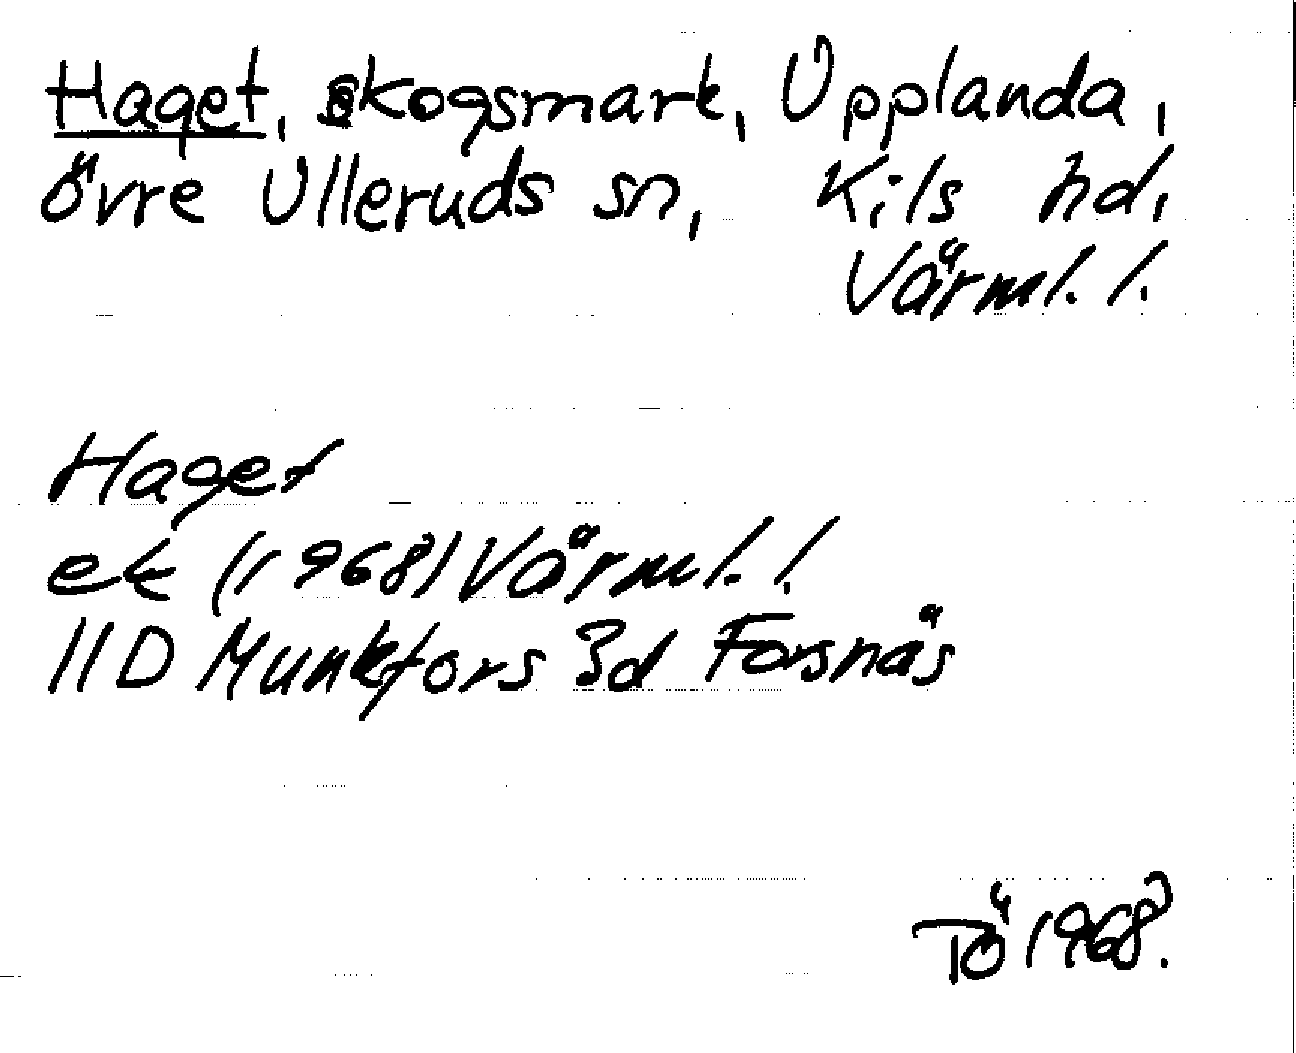 Haget, skogsmark, Upplanda,
Övre Ulleruds sn, Kils hd,
Värml. l.
Haget
ek (1968) Värml. l.
11D Munkfors 3d Forsnäs
TÖ 1968.